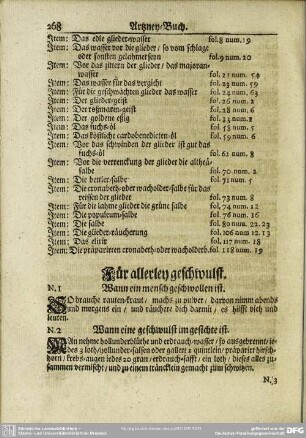 268 Artzney-Buch.
Item: Das edle glieder-wasser fol. 8 num. 19
Item: Das wasser vor die glieder / so vom schlage
oder sonsten gelähmet seyn fol. 9 num. 20
Item: Vor das zittern der glieder / das majoran-
wasser fol. 21 num. 54
Item: Das wasser für das vergicht fol. 23 num. 59
Item: Für die geschmächten glieder das wasser fol. 24 num. 63
Item: Der glieder-geist fol. 26 num. 2
Item: Der roßmarin-geist fol. 28 num. 6
Item: Der goldene eßig fol. 23 num. 2
Item: Das fuchs-öl fol. 58 num. 5
Item: Das köstliche cardobenedicten-öl fol. 59 num. 6
Item: Vor das schwinden der glieder ist gut das
fuchs-öl fol. 62 num. 8
Item: Vor die verrenckung der glieder die altheä-
salbe fol. 70 num. 2
Item: Die bettler-salbe fol. 71 num. 5
Item: Die cronabeth- oder wacholder-salbe für das
reissen der glieder fol. 73 num. 8
Item: Für die lahme glieder die grüne salbe fol. 74 num. 12
Item: Die papulrum-salbe fol. 76 num. 16
Item: Die salbe fol. 80 num. 22. 23
Item: Die glieder-räucherung fol. 106 num 12. 13
Item: Das elixir fol. 117 num. 18
Item: Die präparirten cronabeth- oder wacholderb. fol. 118 num. 19
Für allerley geschwulst.
N. 1 Wann ein mensch geschwollen ist.
So brauche rauten-kraut / machs zu pulver / darvon nimm abends
und morgens ein / und räuchere dich darmit / es hilfft vich und
leuten.
N. 2 Wann eine geschwulst im gesichte ist.
Man nehme hollunderblüthe und erdrauch-wasser / so ausgebrennt / ie-
des 3 loth / hollunder-salsen oder gallert 2 quintlein / präparirt hirsch-
horn / krebs-augen iedes 20 gran / erdrauch-safft / ein loth / dieses alles zu-
sammen vermischt / und zu einem träncklein gemacht zum schwitzen.
N. 3